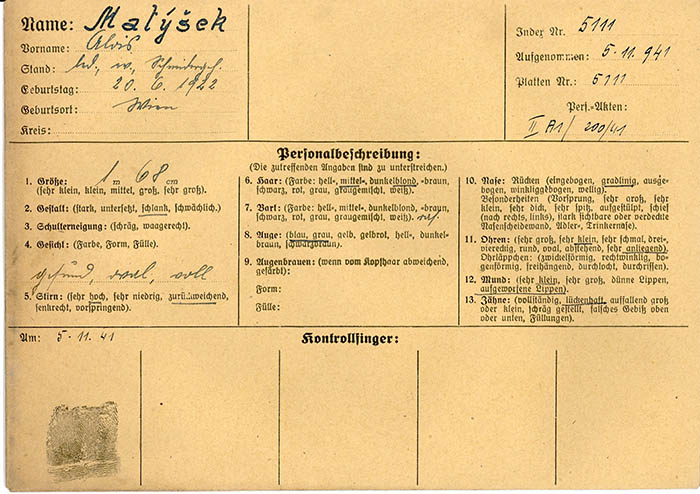 Name: Matýsek
Vorname: Alois
Stand: led., w., Schneidergeh.
Geburtstag: 20. 6. 1922
Geburtsort: Wien
Kreis:
Index Nr. 5111
Aufgenommen: 5. 11. 941
Platten Nr.: 5111
Pers.-Akten:
II A1/ 200/41
Personalbeschreibung:
(Die zutreffenden Angaben sind zu unterstreichen.)
1. Größe: 1 m 68 cm
(sehr klein, klein, mittel, groß, sehr groß).
2. Gestalt: (stark, untersetzt, schlank, schwächlich.)
3. Schulterneigung: (schräg, waagerecht.)
4. Gesicht: (Farbe, Form, Fülle).
gesund, oval, voll
5. Stirn: (sehr hoch, sehr niedrig, zurückweichend,
senkrecht, vorspringend).
6. Haar: (Farbe: hell-, mittel-, dunkelblond, -braun,
schwarz, rot, grau, graugemischt, weiß).
7. Bart: (Farbe: hell-, mittel-, dunkelblond, -braun,
schwarz, rot, grau, graugemischt, weiß).
8. Auge: (blau, grau, gelb, gelbrot, hell-, dunkel-
braun, schwarzbraun).
9. Augenbrauen: (wenn vom Kopfhaar abweichend,
gefärbt):
Form:
Fülle:
10. Nase: Rücken (eingebogen, gradlinig, ausge-
bogen, winkliggebogen, wellig).
Besonderheiten (Vorsprung, sehr groß, sehr
klein, sehr dick, sehr spitz, aufgestülpt, schief
(nach rechts, links), stark sichtbare oder verdeckte
Nasenscheidewand, Adler-, Trinkernase).
11. Ohren: (sehr groß, sehr klein, sehr schmal, drei-,
viereckig, rund, oval, abstehend, sehr anliegend).
Ohrläppchen: (zwickelförmig, rechtwinklig, bo-
genförmig, freihängend, durchlocht, durchrissen).
12. Mund: (sehr klein, sehr groß, dünne Lippen,
aufgeworfene Lippen).
13. Zähne: (vollständig, lückenhaft, auffallend groß
oder klein, schräg gestellt, falsches Gebiß oben
oder unten, Füllungen).
Am: 5. 11. 41
Kontrollfinger: